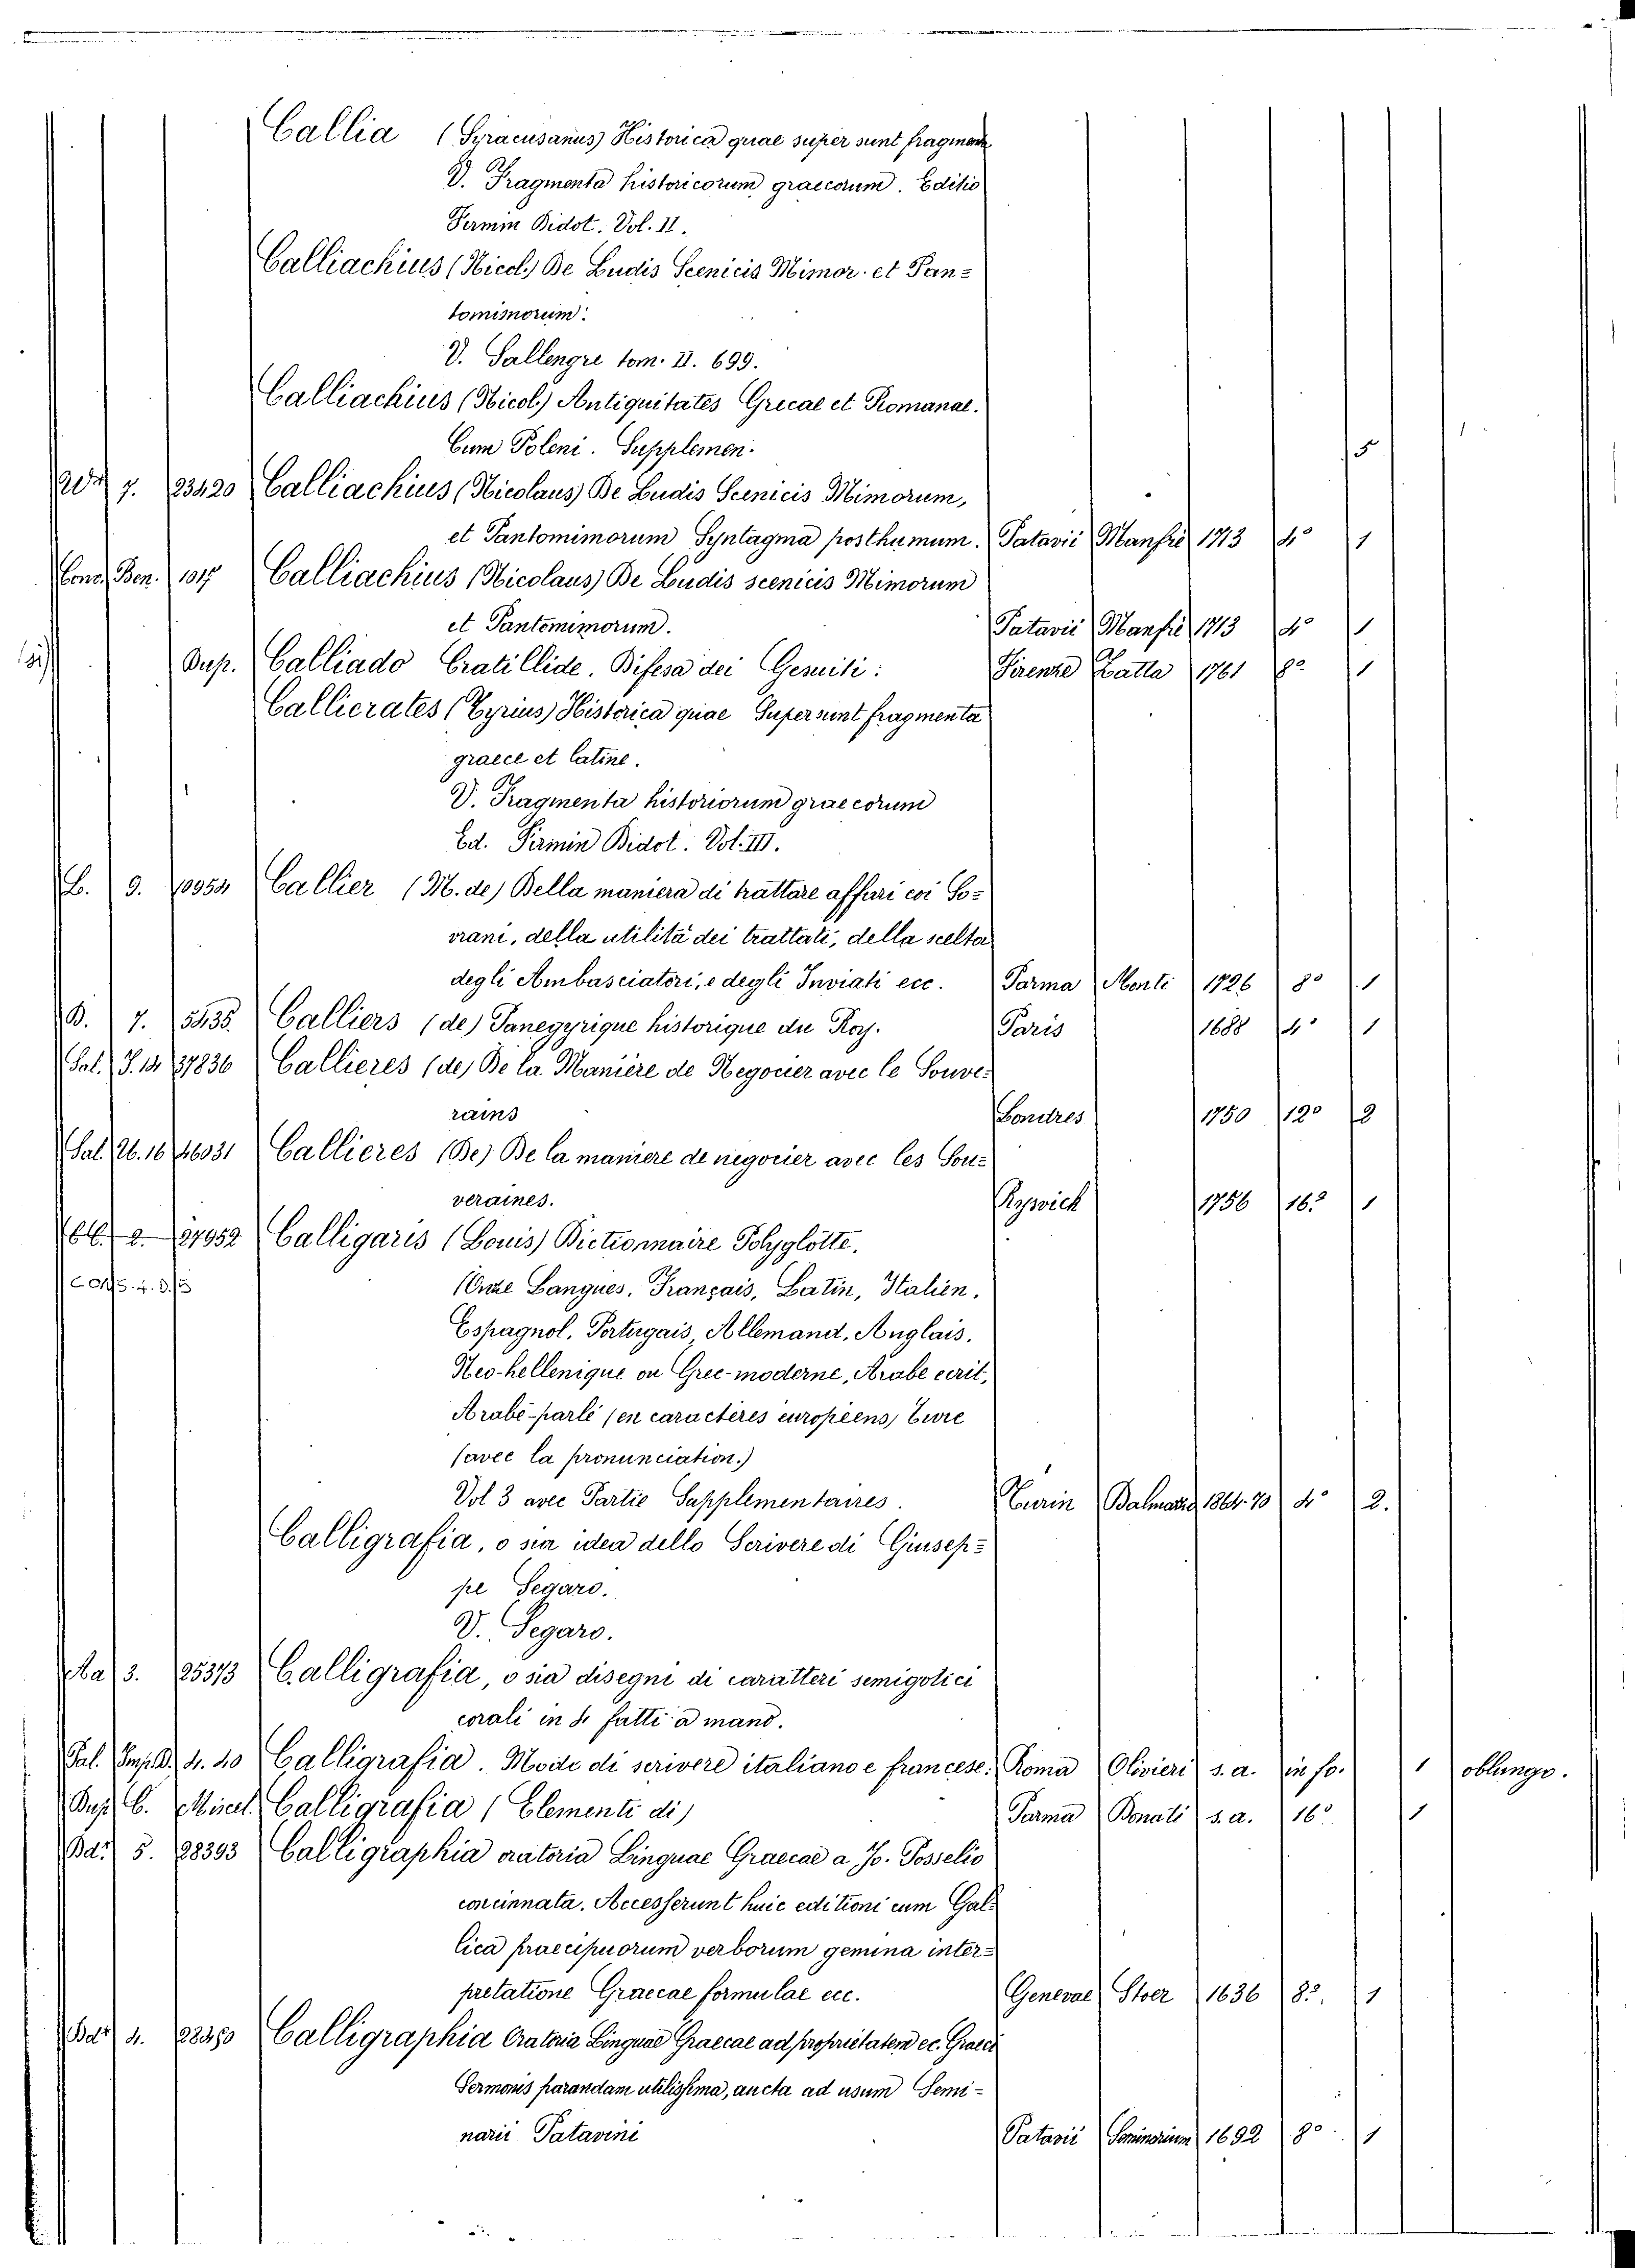 Callia (Syracusanus) Historica quae super sunt fragmenta
V. Fragmenta historicorum graecorum. Editio
Firmin Didot. Vol. II.
Calliachius (Nicol.) De Ludis Scenicis Mimor. et Pan=
tomimorum.
V. Sallengre tom. II. 699.
Calliachius (Nicol.) Antiquitates Grecae et Romanae.
Cum Poleni. Supplemen. 5
7. 23420 Calliachius (Nicolaus) De Ludis Scenicis Mimorum,
et Pantomimorum Syntagma posthumum. Patavii Manfrè 1713 4° 1
Cons. Ben. 1017 Calliachius (Nicolaus) De Ludis scenicis Mimorum
et Pantomimorum. Patavii Manfrè 1713 4° 1
Dup. Calliado Cratillide. Difesa dei Gesuiti: Firenze Zatta 1761 8° 1
Callicrates (Tyrius) Historica quae Supersunt fragmenta
graece et latine.
V. Fragmenta historiorum graecorum
Ed. Firmin Didot. Vol. III.
L. 9. 10954 Callier (M. de) Della maniera di trattare affari coi So=
vrani, della utilità dei trattati, della scelta
degli Ambasciatori, e degli Inviati ecc. Parma Monti 1726 8° 1
B. 7. 5435. Calliers (de) Panegyrique historique du Roy. Paris 1688 4° 1
Sal. J. 14 37836 Callieres (de) De la Manière de Negocier avec le Souve=
rains Londres 1750 12° 2
Sal. 16 46031 Callieres (De) De la maniere de negocier avec les Sou=
veraines. Ryswich 1756 16° 1
2. 27952 Calligaris (Louis) Dictionnaire Polyglotte.
CONS. 4. D. 15 (Onze Langues, Français, Latin, Italien,
Espagnol, Portugais, Allemand, Anglais,
Neo-hellenique ou Grec-moderne, Arabe ecrit,
Arabe-parlé (en caractères européens) Turc
(avec la pronunciation.)
Vol 3 avec Partie Supplementaires. Turin 1864-70 4° 2.
Calligrafia, o sia idea dello Scrivere di Giusep=
pe Segaro.
V. Segaro.
3. 25373 Calligrafia, o sia disegni di caratteri semigotici
corali in 4 fatti a mano.
Pal. 4. 40 Calligrafia. Modo di scrivere italiano e francese. Roma Olivieri s.a. in fo. 1 oblungo.
Dup. C. Miscel. Calligrafia (Elementi di) Parma Bonati s.a. 16° 1
Bar. 5. 28393 Calligraphia oratoria Linguae Graecae a Jo. Posselio
concinnata. Accesserunt huic editioni cum Gal=
lica praecipuorum verborum gemina inter=
pretatione Graecae formulae ecc. Genevae Stoer 1636 8°. 1
Bar. 4. 28450 Calligraphia Oratoria Linguae Graecae ad proprietatem ec. Graeci
Sermonis parandam utilissima, aucta ad usum Semi=
narii Patavini Patavii Seminarium 1692 8° 1